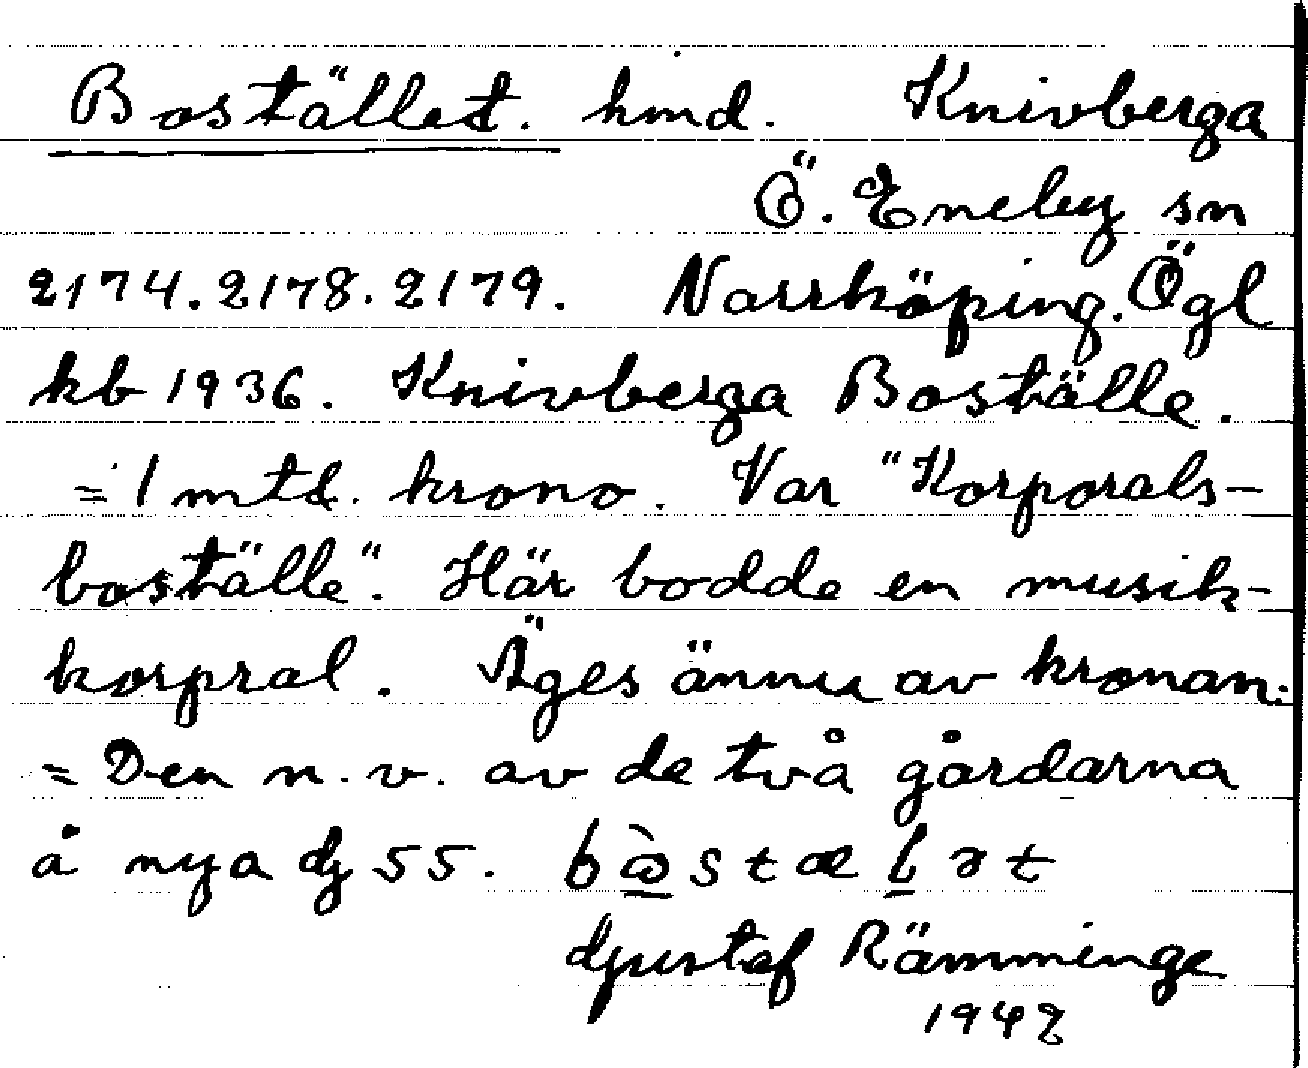 Bostället. hmd. Knivberga
Ö. Eneby sn
2174. 2178. 2179. Norrköping. Ögl
kb 1936. Knivberga Boställe.
= 1 mtl. krono. Var "Korporals-
boställe". Här bodde en musik-
korpral. Äges ännu av kronan.
= Den n. v. av de två gårdarna
å nya dj 55.
Gustaf Rämminge